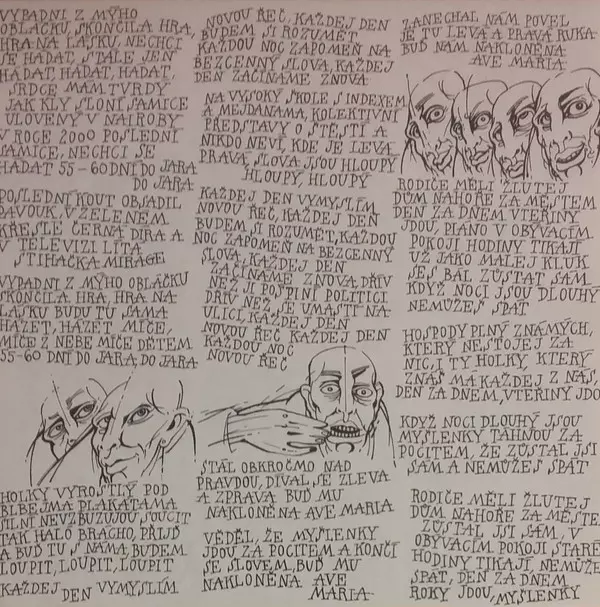 VYPADNI Z MÝHO
OBLÁČKU, SKONČILA HRA,
HRA NA LÁSKU, NECHCI
SE HÁDAT, STÁLE JEN
HÁDAT, HÁDAT, HÁDAT,
SRDCE MÁM TVRDÝ
JAK KLY SLONÍ SAMICE
ULOVENÝ V NAIROBY
V ROCE 2000 POSLEDNÍ
SAMICE, NECHCI SE
HÁDAT 55-60 DNÍ DO JARA
DO JARA
POSLEDNÍ KOUT OBSADIL
PAVOUK, V ZELENÉM
KŘESLE ČERNÁ DÍRA A
V TELEVIZI LÍTÁ
STÍHAČKA MIRAGE
VYPADNI Z MÝHO OBLÁČKU
SKONČILA HRA, HRA NA
LÁSKU BUDU TU SAMA
HÁZET, HÁZET MÍČE,
MÍČE Z NEBE MÍČE DĚTEM
55-60 DNÍ DO JARA, DO JARA
HOLKY VYROSTLÝ POD
BLBEJMA PLAKÁTAMA
SILNÍ NEVZBUZUJOU SOUCIT
TAK HALÓ BRÁCHO, PŘIJĎ
A BUĎ TU S NÁMA, BUDEM
LOUPIT, LOUPIT, LOUPIT
KAŽDEJ DEN VYMYSLÍM
NOVOU ŘEČ, KAŽDEJ DEN
BUDEM SI ROZUMĚT
KAŽDOU NOC ZAPOMEŇ NA
BEZCENNÝ SLOVA, KAŽDEJ
DEN ZAČÍNÁME ZNOVA
NA VYSOKÝ ŠKOLE S INDEXEM
A MEJDANAMA, KOLEKTIVNÍ
PŘEDSTAVY O ŠTĚSTÍ A
NIKDO NEVÍ, KDE JE LEVÁ
PRAVÁ, SLOVA JSOU HLOUPÝ
HLOUPÝ, HLOUPÝ
KAŽDEJ DEN VYMYSLÍM
NOVOU ŘEČ, KAŽDEJ DEN
BUDEM SI ROZUMĚT, KAŽDOU
NOC ZAPOMEŇ NA BEZCENNÝ
SLOVA, KAŽDEJ DEN
ZAČÍNÁME ZNOVA, DŘÍV
NEŽ JI POŠPINÍ POLITICI
DŘÍV NEŽ SE UMASTÍ NA
ULICI, KAŽDEJ DEN
NOVOU ŘEČ KAŽDEJ DEN
KAŽDOU NOC
NOVOU ŘEČ
STÁL OBKROČMO NAD
PRAVDOU, DÍVAL SE ZLEVA
A ZPRAVA BUĎ MU
NAKLONĚNA AVE MARIA
VĚDĚL, ŽE MYŠLENKY
JDOU ZA POCITEM A KONČÍ
SE SLOVEM, BUĎ MU
NAKLONĚNA AVE
MARIA
ZANECHAL NÁM POVEL
JE TU LEVÁ A PRAVÁ RUKA
BUĎ NÁM NAKLONĚNA
AVE MARIA
RODIČE MĚLI ŽLUTEJ
DŮM NAHOŘE ZA MĚSTEM
DEN ZA DNEM VTEŘINY
JDOU, PIANO V OBÝVACÍM
POKOJI HODINY TIKAJÍ
UŽ JAKO MALEJ KLUK
SES BÁL ZŮSTAT SÁM
KDYŽ NOCI JSOU DLOUHÝ
NEMŮŽEŠ SPÁT
HOSPODY PLNÝ ZNÁMÝCH,
KTERÝ NESTOJEJ ZA
NIC, I TY HOLKY, KTERÝ
ZNÁŠ MÁ KAŽDEJ Z NÁS,
DEN ZA DNEM, VTEŘINY JDO
KDYŽ NOCI DLOUHÝ JSOU
MYŠLENKY TÁHNOU ZA
POCITEM, ŽE ZŮSTAL JSI
SÁM A NEMŮŽEŠ SPÁT
RODIČE MĚLI ŽLUTEJ
DŮM NAHOŘE ZA MĚSTE
ZŮSTAL JSI SÁM, V
OBÝVACÍM POKOJI STARÉ
HODINY TIKAJÍ, NEMŮŽE
SPÁT, DEN ZA DNEM
ROKY JDOU, MYŠLENKY